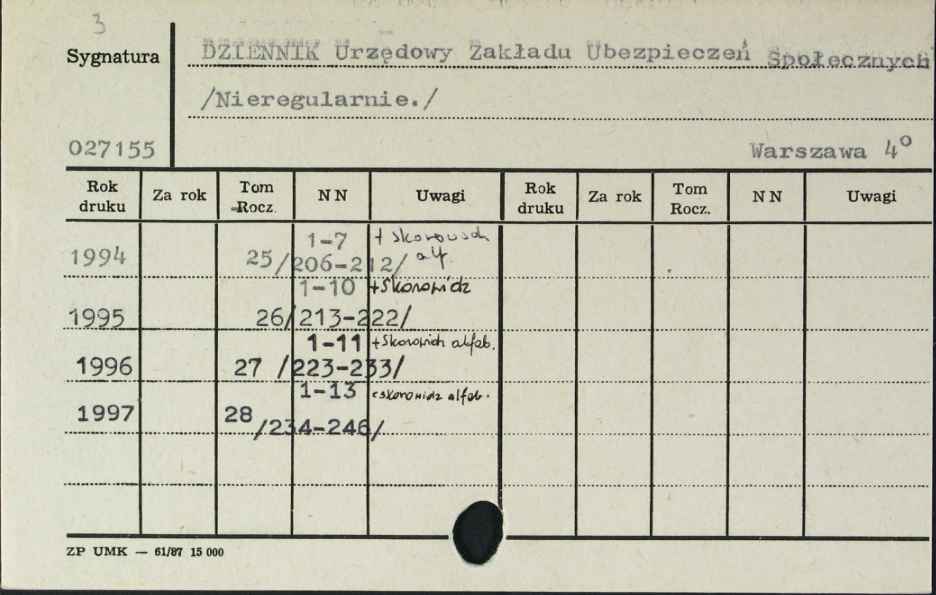 3
Sygnatura DZIENNIK Urzędowy Zakładu Ubezpieczeń Społecznych
/Nieregularnie./
027155 Warszawa 4°
Rok druku Za rok Tom Rocz. N N Uwagi Rok druku Za rok Tom Rocz. N N Uwagi
1-7 + skorowidz
1994 25/206-212/ alf.
1-10 +Skorowidz
1995 26/213-222/
1-11 +Skorowidz alfab.
1996 27 /223-233/
1-13 +skorowidz alfab.
1997 28 /234-246/
ZP UMK — 61/87 15 000